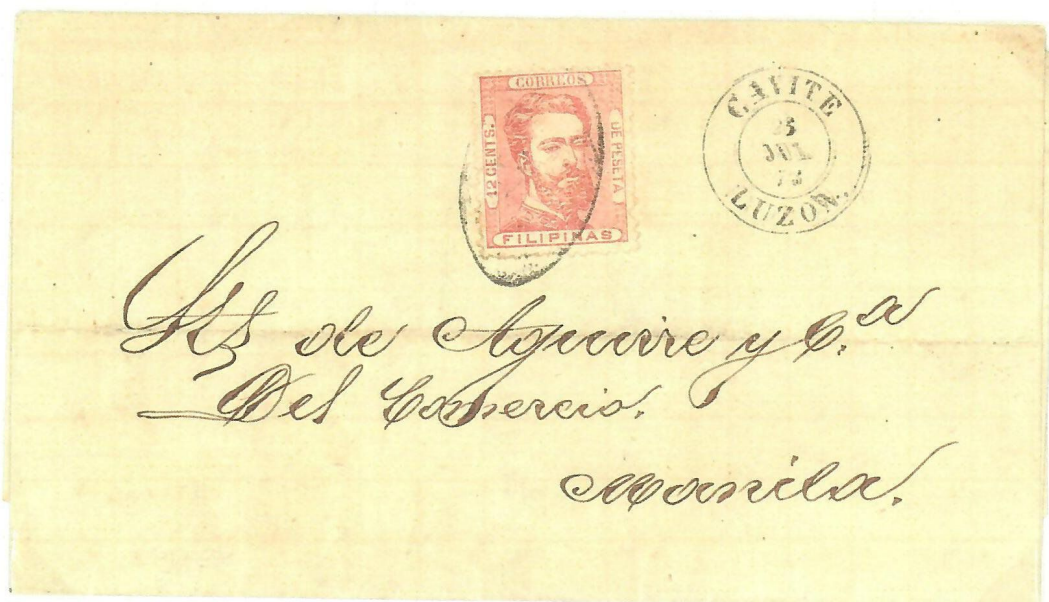 CORREOS
12 CENTS.
DE PESETA
FILIPINAS
CAVITE
JUL
LUZON.
Srs de Aguirre y C.ª
Del Comercio.
Manila.